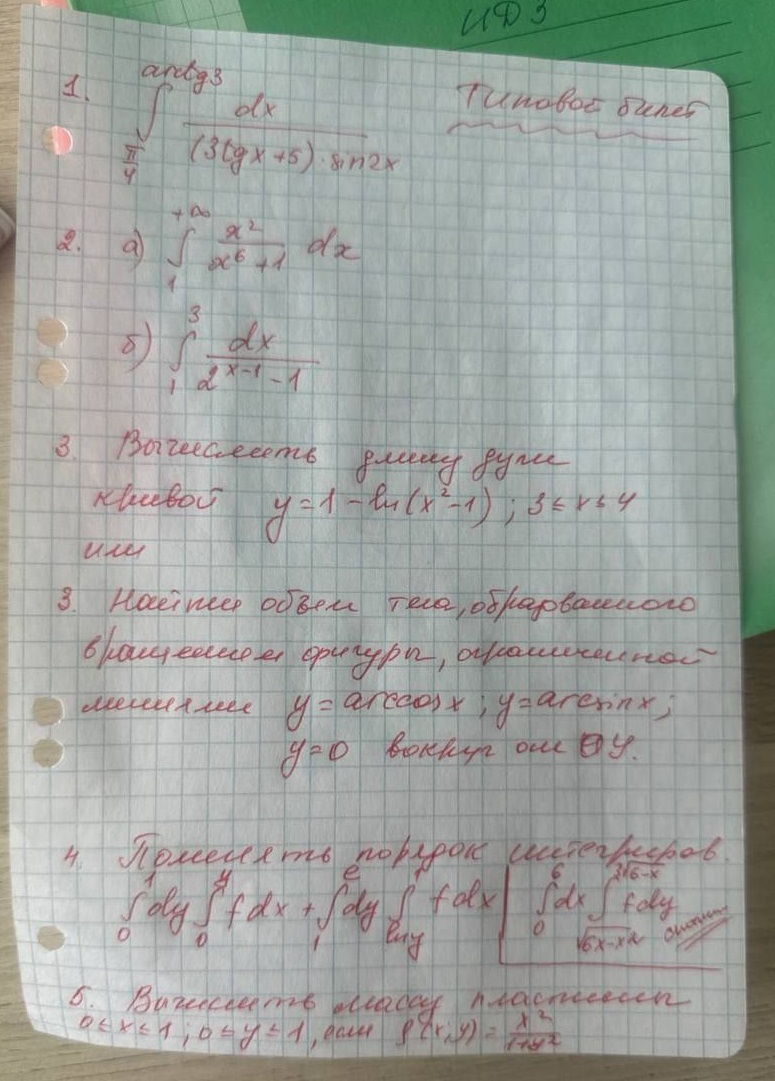 ИДЗ
Типовой билет
1. ∫_{π/4}^{arctg3} dx / ((3tgx+5)·sin2x)
2. а) ∫_1^{+∞} x²/(x⁶+1) dx
б) ∫_1^3 dx/(2^{x-1}-1)
3. Вычислить длину дуги
кривой y=1-ln(x²-1); 3≤x≤4
или
3. Найти объем тела, образованного
вращением фигуры, ограниченной
линиями y=arccosx; y=arcsinx;
y=0 вокруг оси OY.
4. Поменять порядок интегриров.
∫_0^1 dy ∫_0^y f dx + ∫_1^e dy ∫_{lny}^1 f dx | ∫_0^6 dx ∫_{√(6x-x²)}^{2√(6-x)} f dy
5. Вычислить массу пластины
0≤x≤1; 0≤y≤1, если ρ(x,y)= x²/(1+y²)